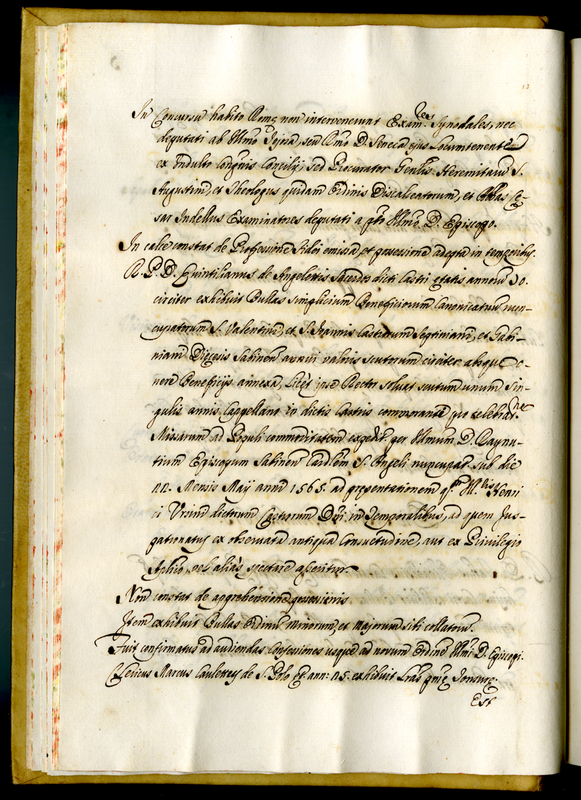 In Concursu habito Romę non intervenerunt Exam.res Synodales, nec
deputati ab Illmo D. seu Rmo D. Seneca ejus locumtenente
ex Indulto Concilij, sed Procurator Genlis Heremitaru S.
Augustini, et Theologus quidam Ordinis Discalceatorum, et Abbas Cę-
sar Indellus Examinatores deputati a pto Illmo D. Episcopo.
In calce constat de Professione fidei emissa, et possessione adepta in temporibus
R. P. D. Quintilianus de Angelottis Sacerdos dicti Castri ętatis annoru 30.
circiter exhibuit Bullas simplicium Beneficiorum Canonicatuu nun-
cupatorum S. Valentini, et S. Joannis Castrorum et Gabi-
niani Diecesis Sabinen annui valoris scutorum circiter absque o-
nere Beneficijs annexa, licet ipse Rector solvat scutum unum sin-
gulis annis Cappellano in dictis Castris commoranti pro celebrat.ne
Missarum ad Populi commoditatem expedit. per Illmum D. Ray-
tium Episcopum Sabinen Cardlem S. Angeli nuncupat. sub die
22. Mensis Maij anni 1565. ad presentationem q. Illris Henri
ci Ursini dictorum Castrorum Dni in temporalibus, ad quem Jus-
patronatus ex observata antiqua Consuetudine, aut ex Privilegio
Aplico, vel alias spectare asseritur.
Non constat de apprehensione possessionis.
Item exhibuit Bullas Ordinu minorum, et majorum sibi collatoru.
Fuit confirmatus ad audiendas Confessiones usque ad novum Ordine Illmi D. Episcopi.
Clericus Marcus de S. Polo ęt. ann: 25. exhibuit Lras primę Tonsurę.
Est